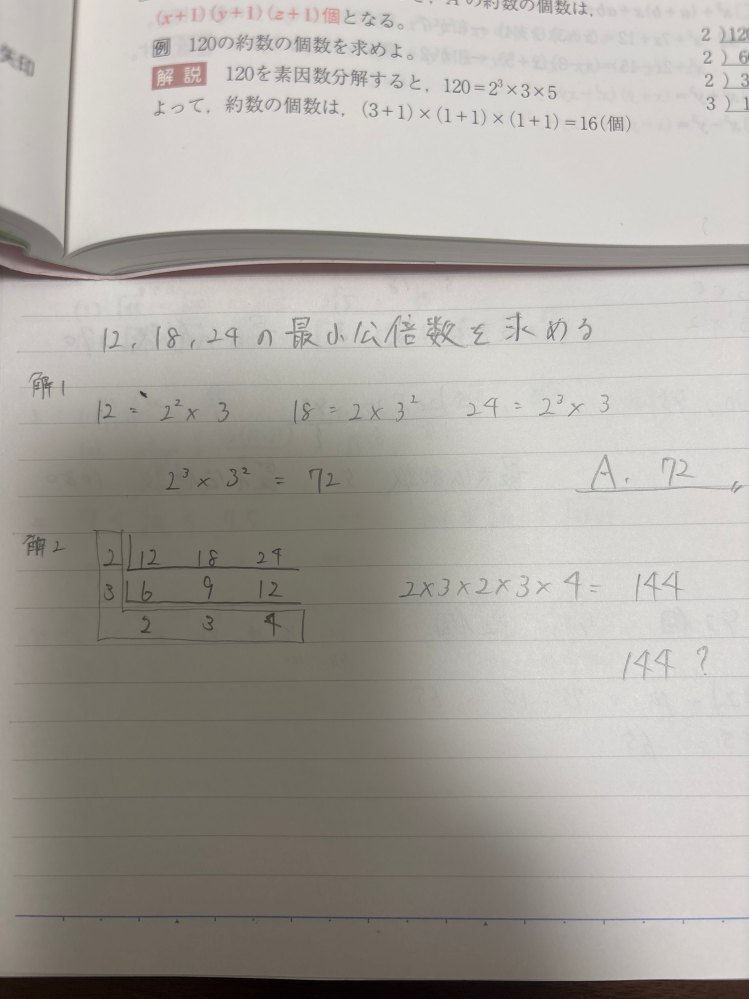 の約数の個数は,
(x+1)(y+1)(z+1)個となる。
例 120の約数の個数を求めよ。
解説 120を素因数分解すると, 120=2³×3×5
よって, 約数の個数は, (3+1)×(1+1)×(1+1)=16(個)
2 ) 120
2 ) 6
2 ) 3
3 ) 1
矢印
12, 18, 24 の 最小公倍数を求める
解1
12 = 2² × 3 18 = 2 × 3² 24 = 2³ × 3
2³ × 3² = 72
A. 72
解2
2 12 18 24
3 6 9 12
2 3 4
2×3×2×3×4 = 144
144 ?